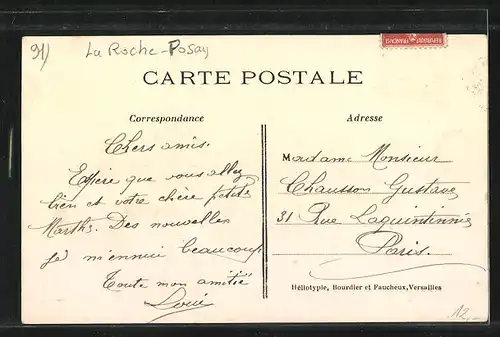 91)
La Roche-Posay
REPUBLIQUE FRANCAISE
CARTE POSTALE
Correspondance
Adresse
Chers amis.
Espère que vous allez
bien et votre chère petite
Marthe. Des nouvelles
je m'ennui beaucoup
Toute mon amitié
Louis
Madame Monsieur
Chausson Gustave
31 Rue Laquintinnie
Paris.
Héliotypie, Bourdier et Faucheux, Versailles
12